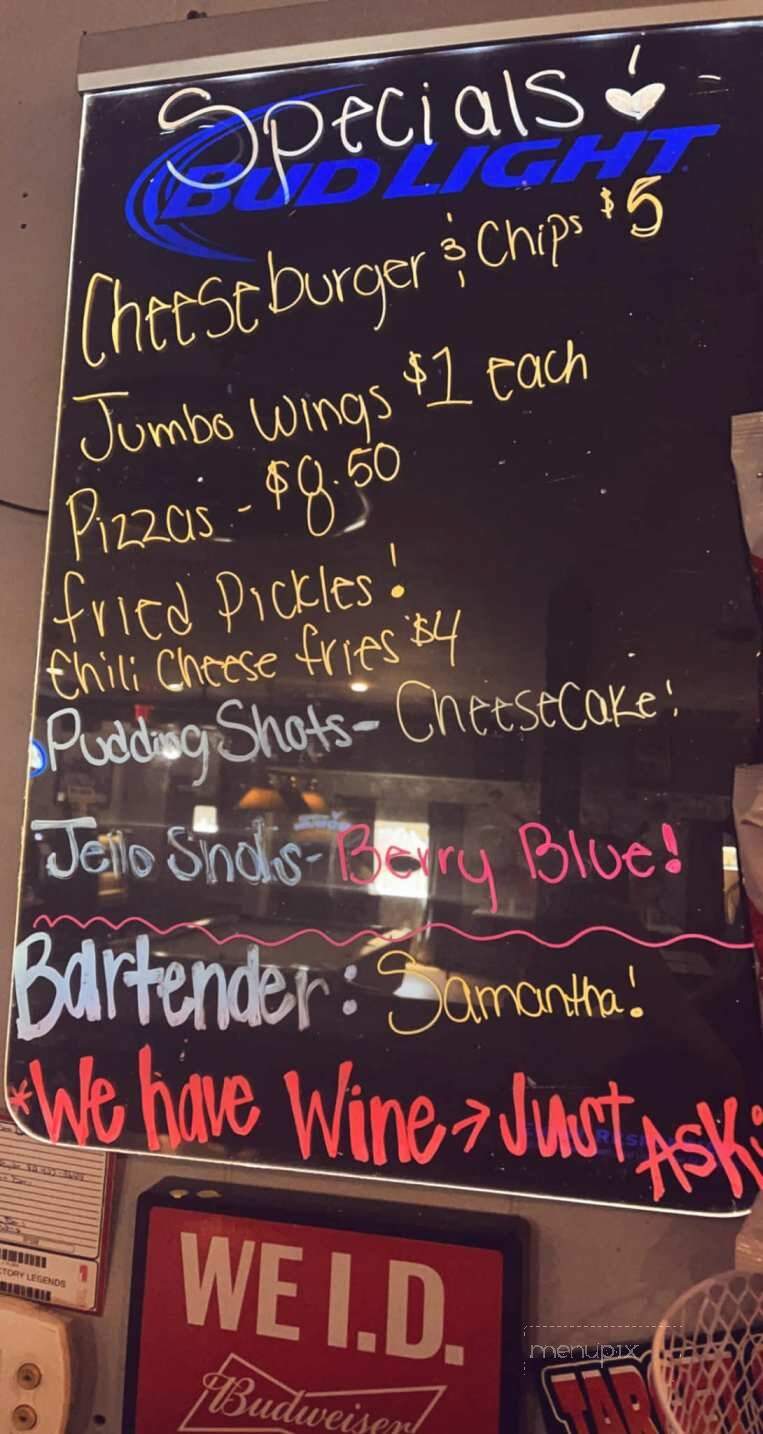 Specials
BUD LIGHT
Cheeseburger & Chips $5
Jumbo Wings $1 each
Pizzas - $8.50
fried Pickles!
Chili Cheese fries $4
Pudding Shots - Cheesecake!
Jello Shots - Berry Blue!
Bartender: Samantha!
*We have Wine → Just Ask!
WE I.D.
Budweiser
menupix
TAR